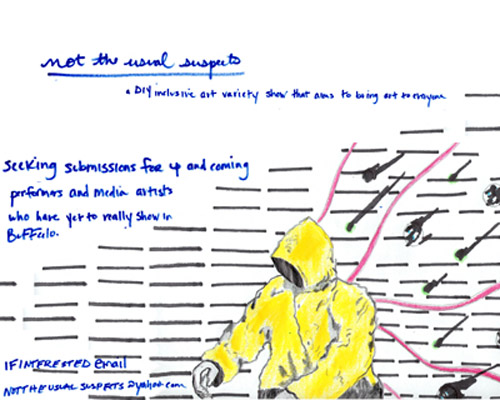 not the usual suspects
a DIY inclusive art variety show that aims to bring art to everyone
Seeking submissions for up and coming
preformers and media artists
who have yet to really show in
Buffalo.
IF INTERESTED email
NOTTHEUSUALSUSPECTS@yahoo.com